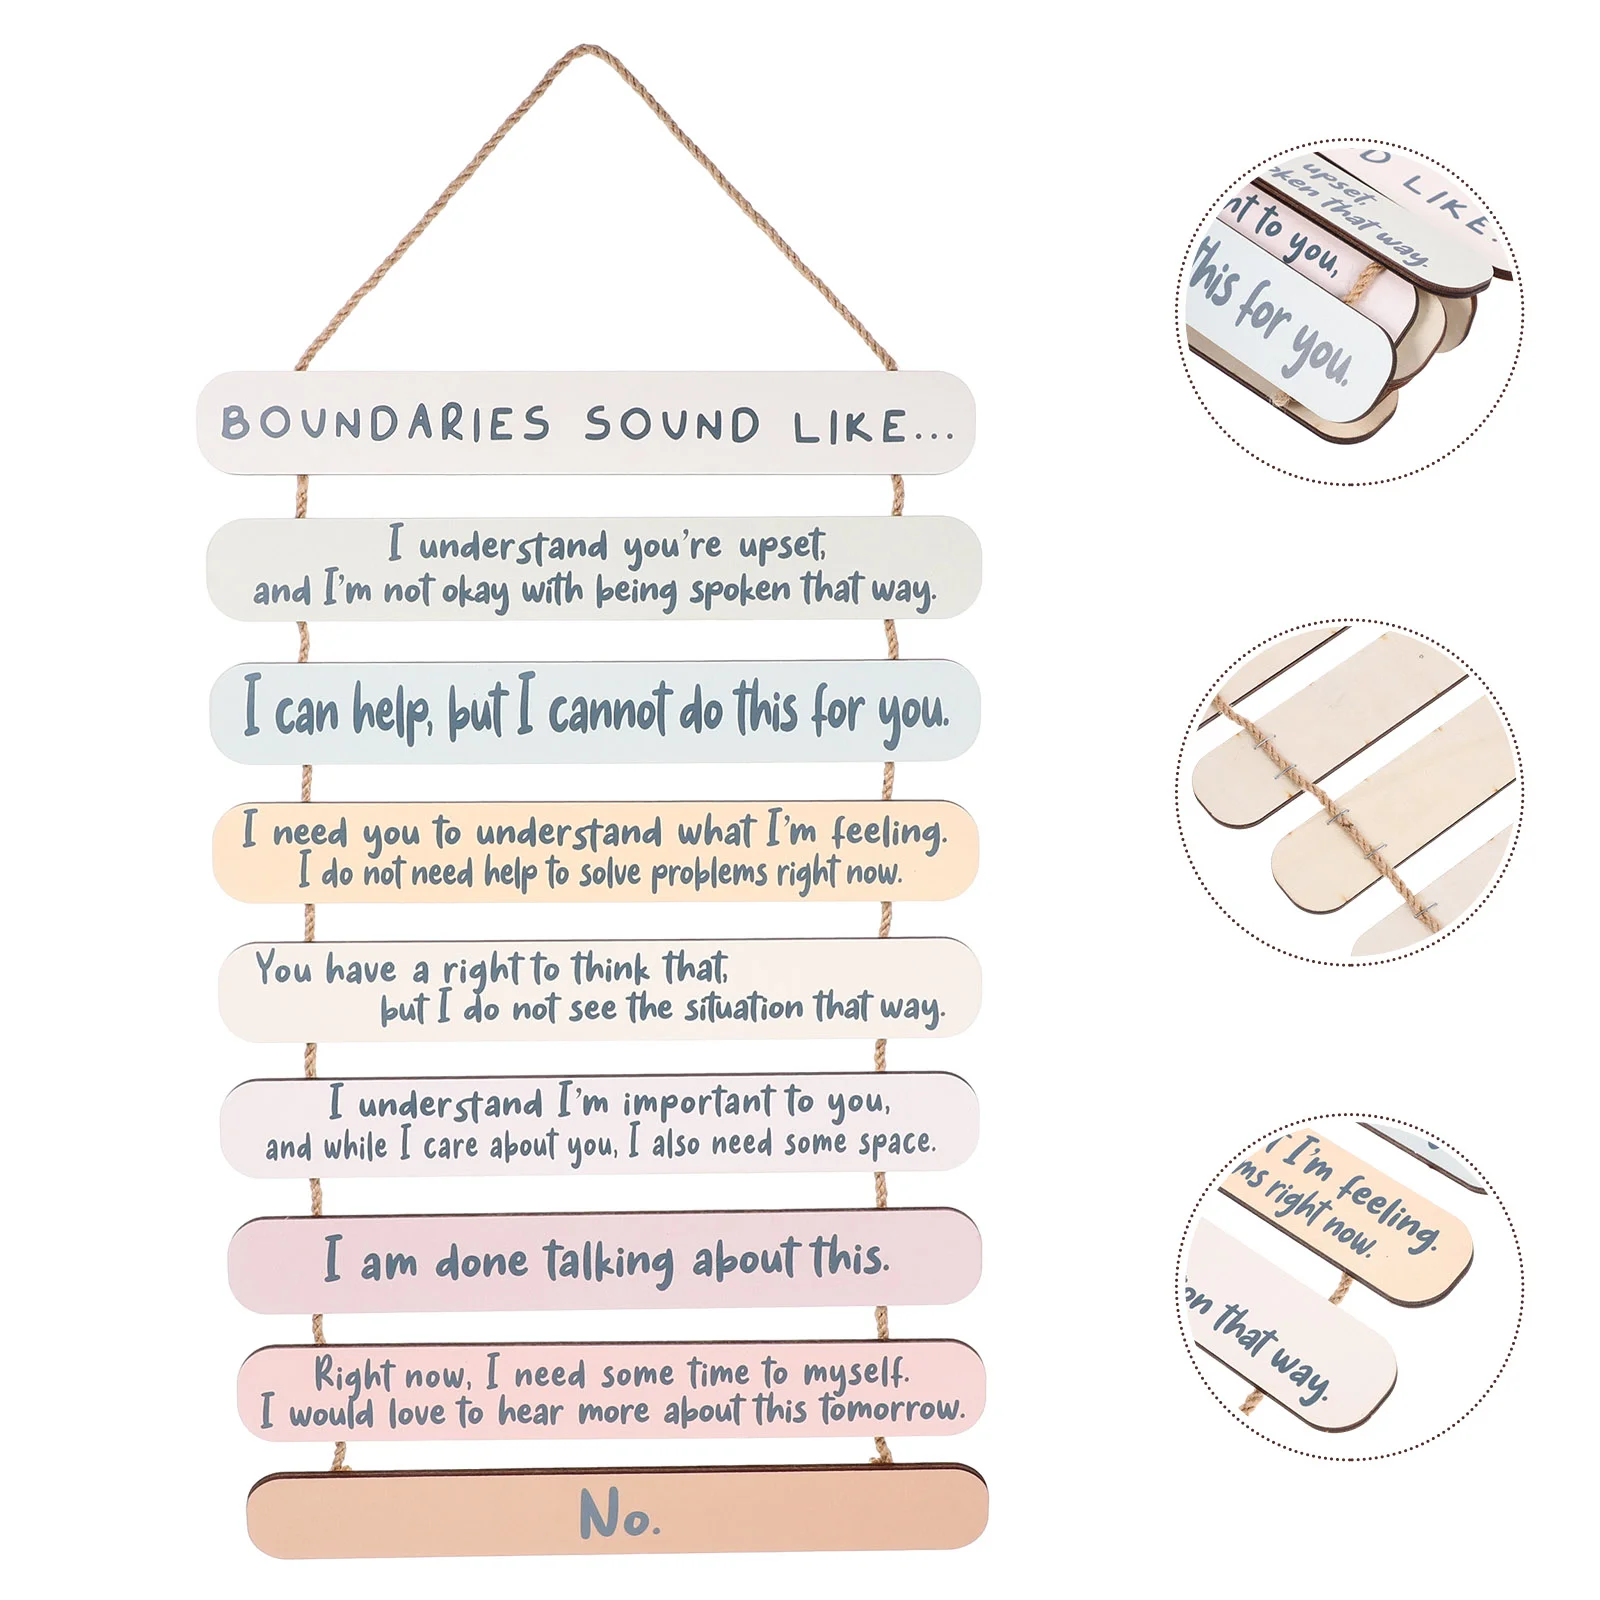 BOUNDARIES SOUND LIKE...
I understand you're upset,
and I'm not okay with being spoken that way.
I can help, but I cannot do this for you.
I need you to understand what I'm feeling.
I do not need help to solve problems right now.
You have a right to think that,
but I do not see the situation that way.
I understand I'm important to you,
and while I care about you, I also need some space.
I am done talking about this.
Right now, I need some time to myself.
I would love to hear more about this tomorrow.
No.
D LIKE.
upset,
ken that way.
nt to you,
this for you.
I'm feeling.
ms right now.
on that way.